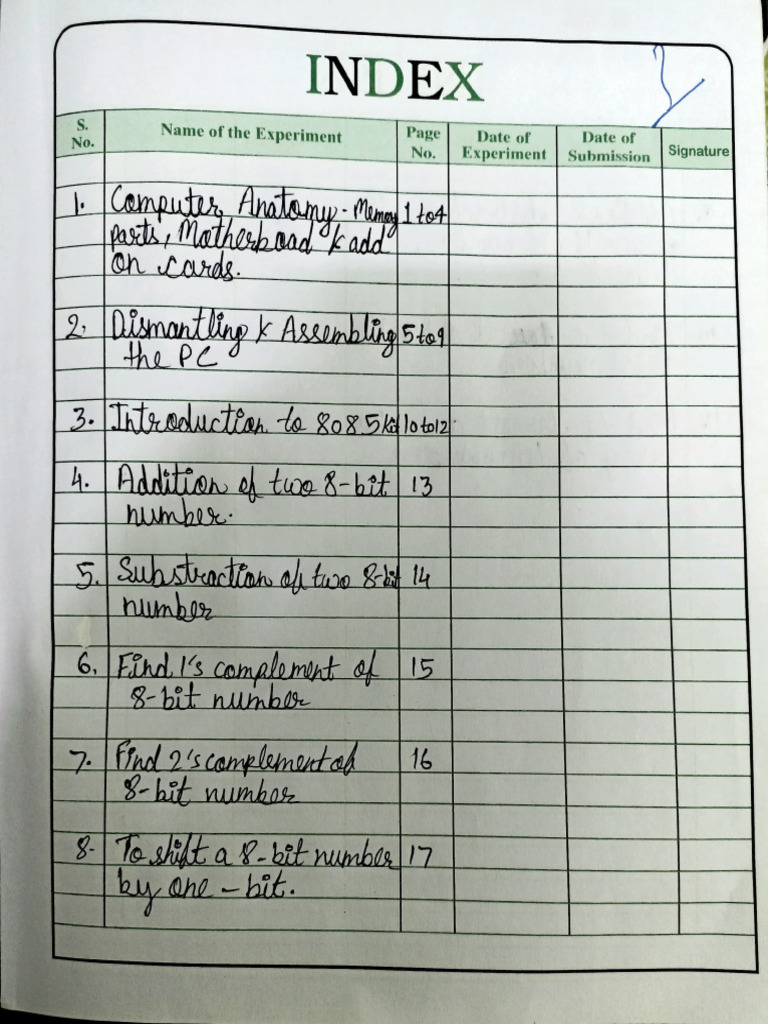 INDEX
S. No. Name of the Experiment Page No. Date of Experiment Date of Submission Signature
1. Computer Anatomy - Memory 1 to 4
parts, Motherboad & add
on cards.
2. Dismantling & Assembling 5 to 9
the PC
3. Introduction to 8085 kit 10 to 12
4. Addition of two 8-bit 13
number.
5. Substraction of two 8-bit 14
number
6. Find 1's complement of 15
8-bit number
7. Find 2's complement of 16
8-bit number
8- To shift a 8-bit number 17
by one-bit.